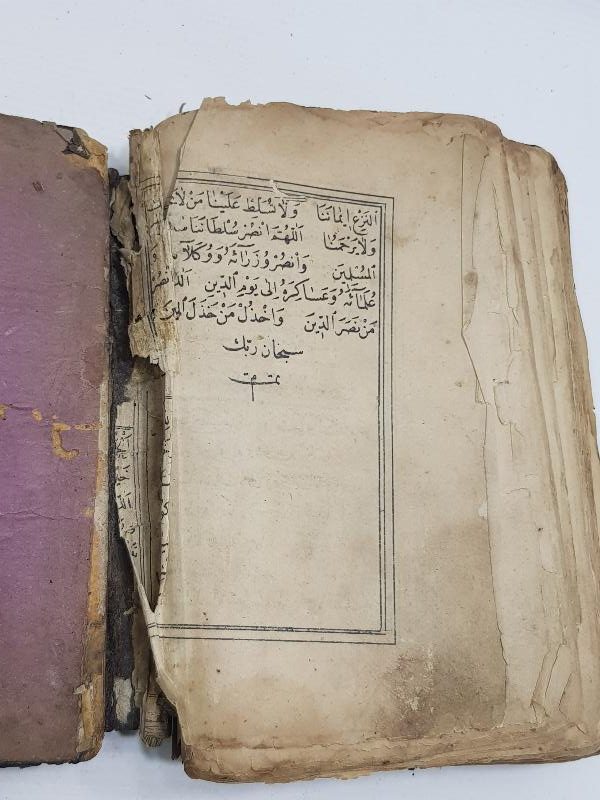 النزع ايماننا ولا تسلط علينا من لا
ولا يرحمنا اللهم انصر سلطاننا
المسلمين وانصر وزرائه ووكلا
علمائه وعساكره الى يوم الدين
من نصر الدين واخذل من خذل
سبحان ربك
تمت